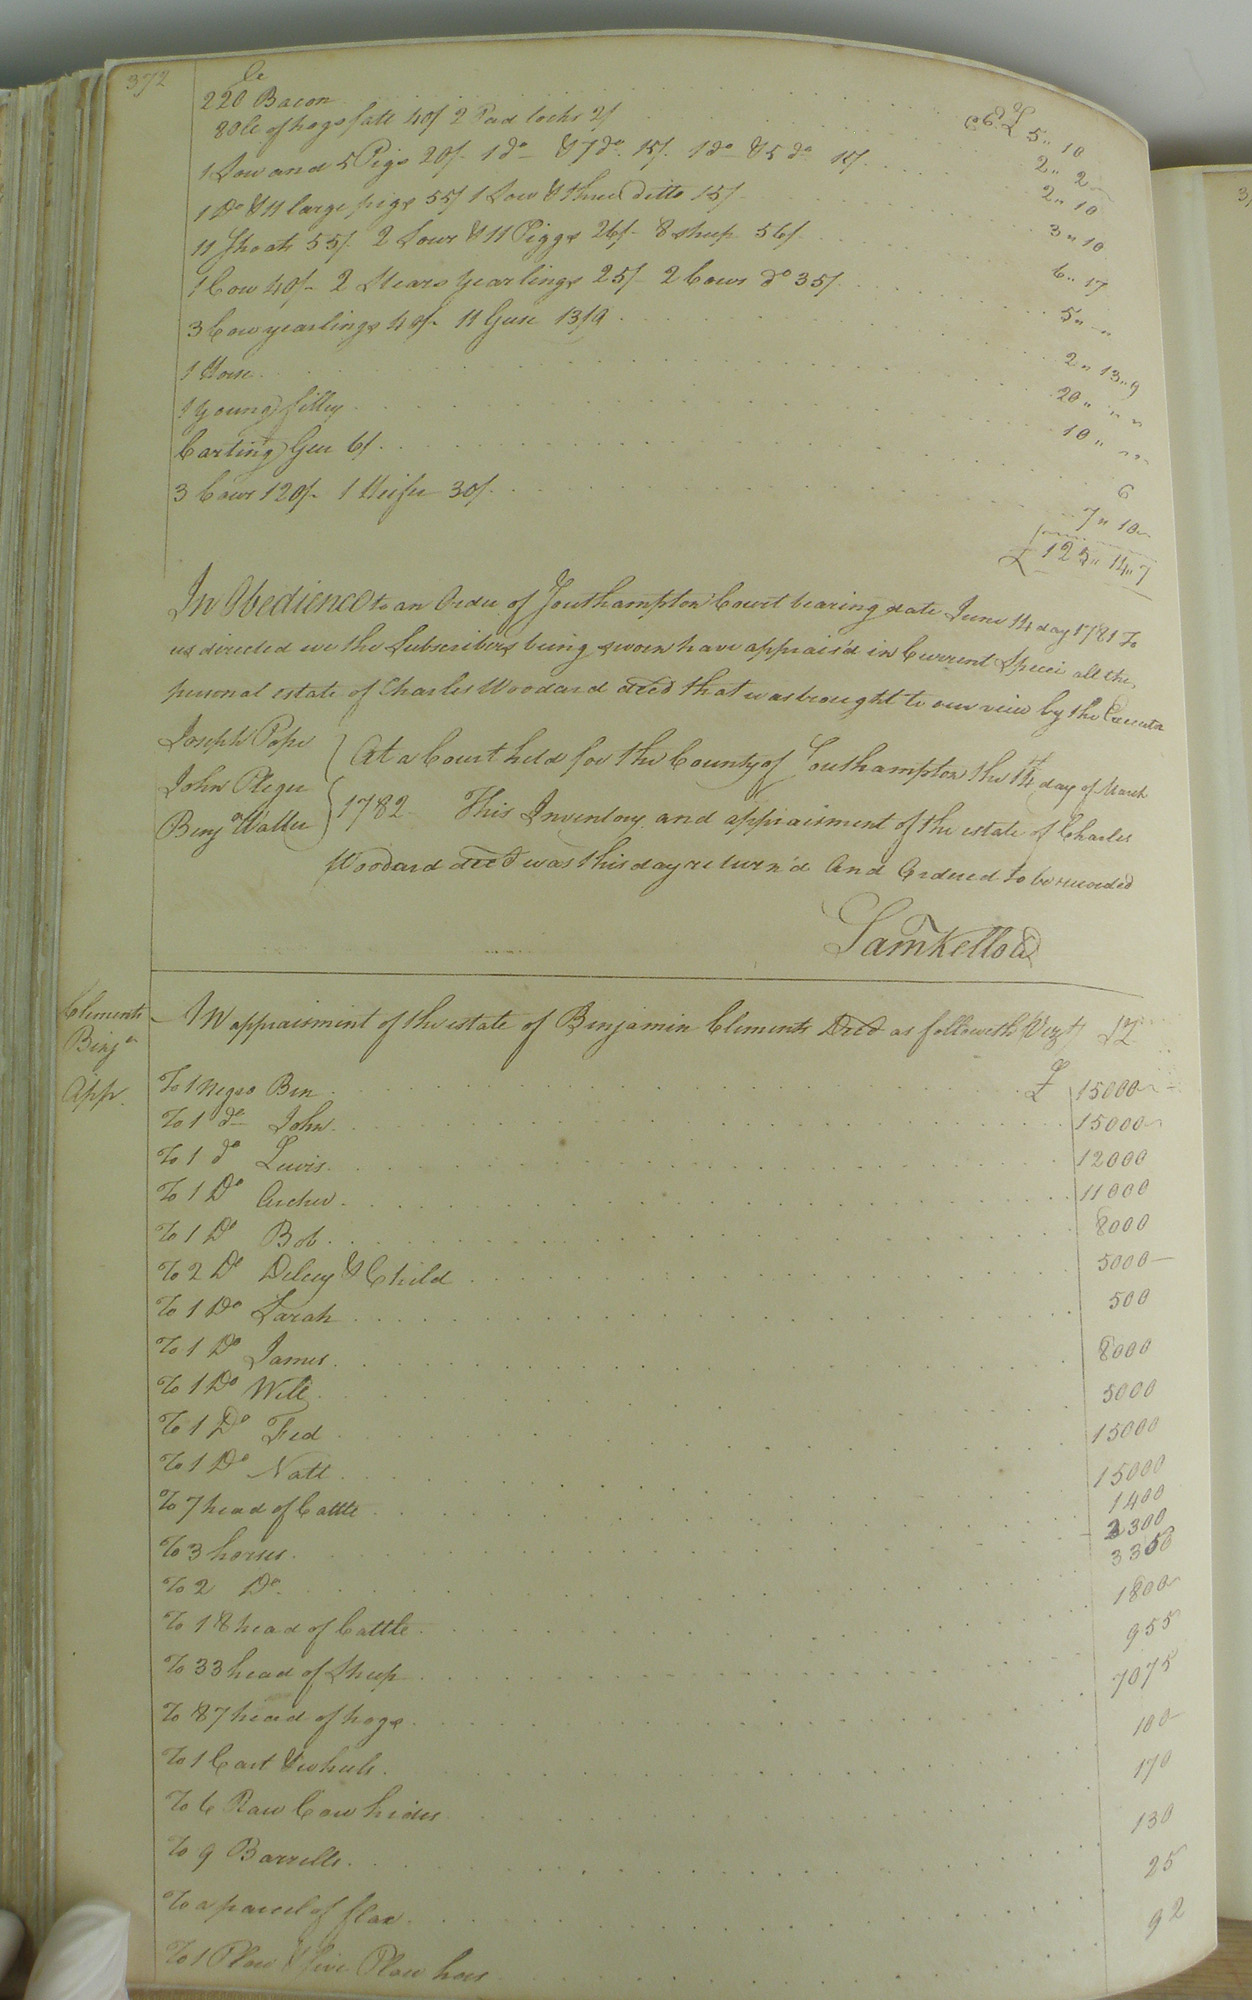 372
lb
220 Bacon £ 5" 10
80 lb of hogs fatt 40/ 2 Pad locks 2/ 2" 2
1 Sow and 5 Pigs 20/- 1 do & 7 do 15/. 1 do & 5 do 15/. 2" 10
1 Do & 11 large pigs 55/ 1 Sow & three ditto 15/ 3" 10
11 Shoats 55/- 2 Sows & 11 Piggs 26/- 8 sheep 56/ 6" 17
1 Cow 40/- 2 Stears Yearlings 25/- 2 Cows do 35/ 5" "
3 Cow yearlings 40/- 11 Geese 13/9 2" 13" 9
1 Horse 20" " "
1 Young filley 10" " "
Carting Geer 6/ 6
3 Cows 120/- 1 Heifer 30/ 7" 10
£ 125" 14" 7
In Obedience to an Order of Southampton Court bearing date June 14 day 1781 To
us directed we the Subscribers being sworn have apprais'd in Current Specie all the
personal estate of Charles Woodard decd that was brought to our view by the Executor
Joseph Pope
John
Benj Waller
At a Court held for the County of Southampton the 14 day of March
1782. This Inventory and appraisment of the estate of Charles
Woodard decd was this day return'd And Ordered to be recorded
Saml Kello
Clements
Benjn
App.
In appraisment of the estate of Benjamin Clements Decd as followeth (Vizt)
To 1 Negro Ben £ 15000
To 1 do John 15000
To 1 do Lewis 12000
To 1 Do Archer 11000
To 1 Do Bob 8000
To 2 Do Delcey & Child 5000
To 1 Do Sarah 500
To 1 Do James 8000
To 1 Do Will 5000
To 1 Do Fed 15000
To 1 Do Natt 15000
To 7 head of Cattle 1400
To 3 horses 2300
To 2 Do 3350
To 18 head of Cattle 1800
To 33 head of Sheep 955
To 87 head of hogs 7075
To 1 Cart & wheels 100
To 6 Raw Cow hides 170
To 9 Barrells 130
To a parcel of flax 25
To 1 Plow & five Plow hoes 92